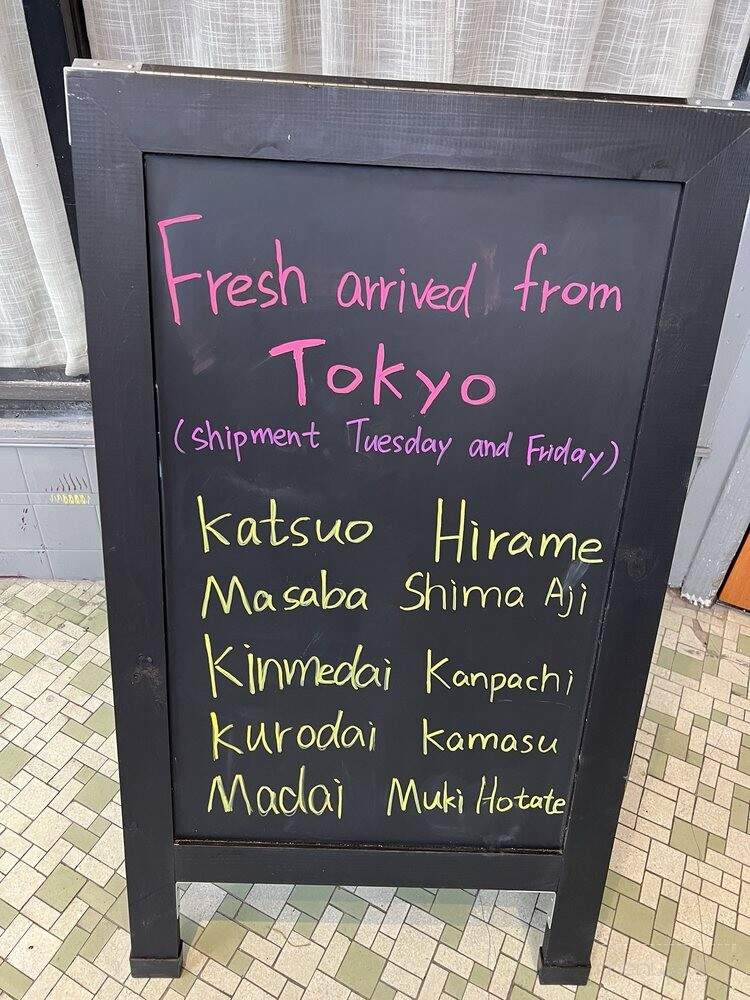 Fresh arrived from
Tokyo
(shipment Tuesday and Friday)
Katsuo Hirame
Masaba Shima Aji
Kinmedai Kanpachi
Kurodai Kamasu
Madai Muki Hotate